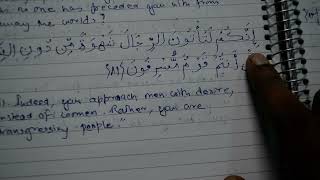 no one has preceded you with from
the world?
إِنَّكُمْ لَتَأْتُونَ الرِّجَالَ شَهْوَةً مِّن دُونِ
أَنتُمْ قَوْمٌ مُّسْرِفُونَ (٨١)
Indeed, you approach men with desire,
instead of women. Rather, you are
transgressing people."